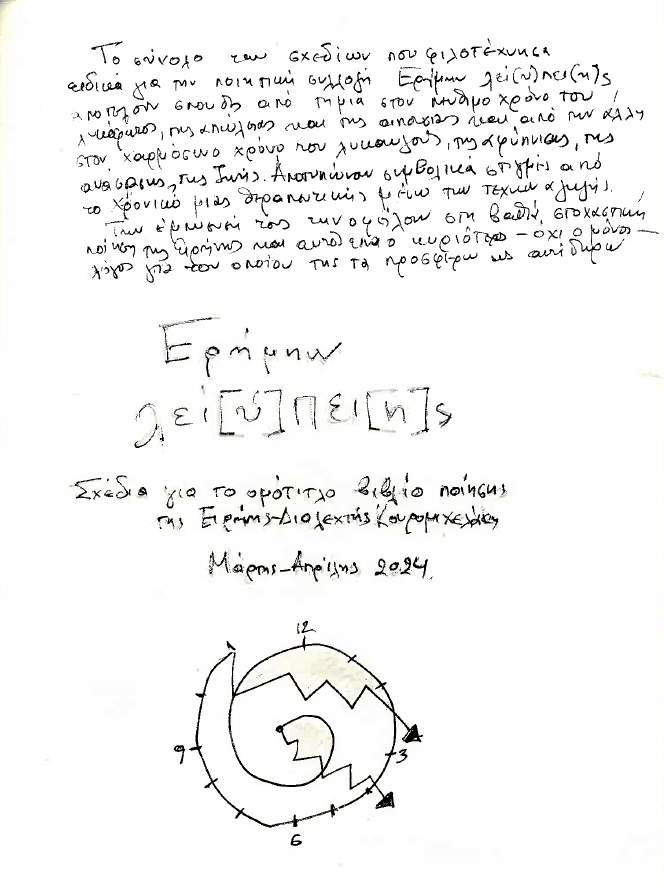 Το σύνολο των σχεδίων που φιλοτέχνησα
ειδικά για την ποιητική συλλογή Ερήμην λεί[ύ]πει[η]ς
αποπνέουν σπουδές από τη μια στον πένθιμο χρόνο του
λυκόφωτος, της απώλειας και της απουσίας και από την άλλη
στον χαρμόσυνο χρόνο του λυκαυγούς, της αφύπνισης, της
ανάστασης, της Ζωής. Αποτυπώνουν συμβολικά στιγμές από
το χρονικό μιας θεραπευτικής μέσω των τεχνών αγωγής.
Την έμπνευσή τους την οφείλουν στη βαθιά, στοχαστική
ποίηση της Ειρήνης και αυτός είναι ο κυριότερος – όχι ο μόνος –
λόγος για τον οποίον της τα προσφέρω ως αντίδωρο
Ερήμην
λεί[ύ]πει[η]ς
Σχέδια για το ομότιτλο βιβλίο ποίησης
της Ειρήνης-Διαλεχτής Κουρομιχελάκη
Μάρτης-Απρίλης 2024.
12
9
3
6